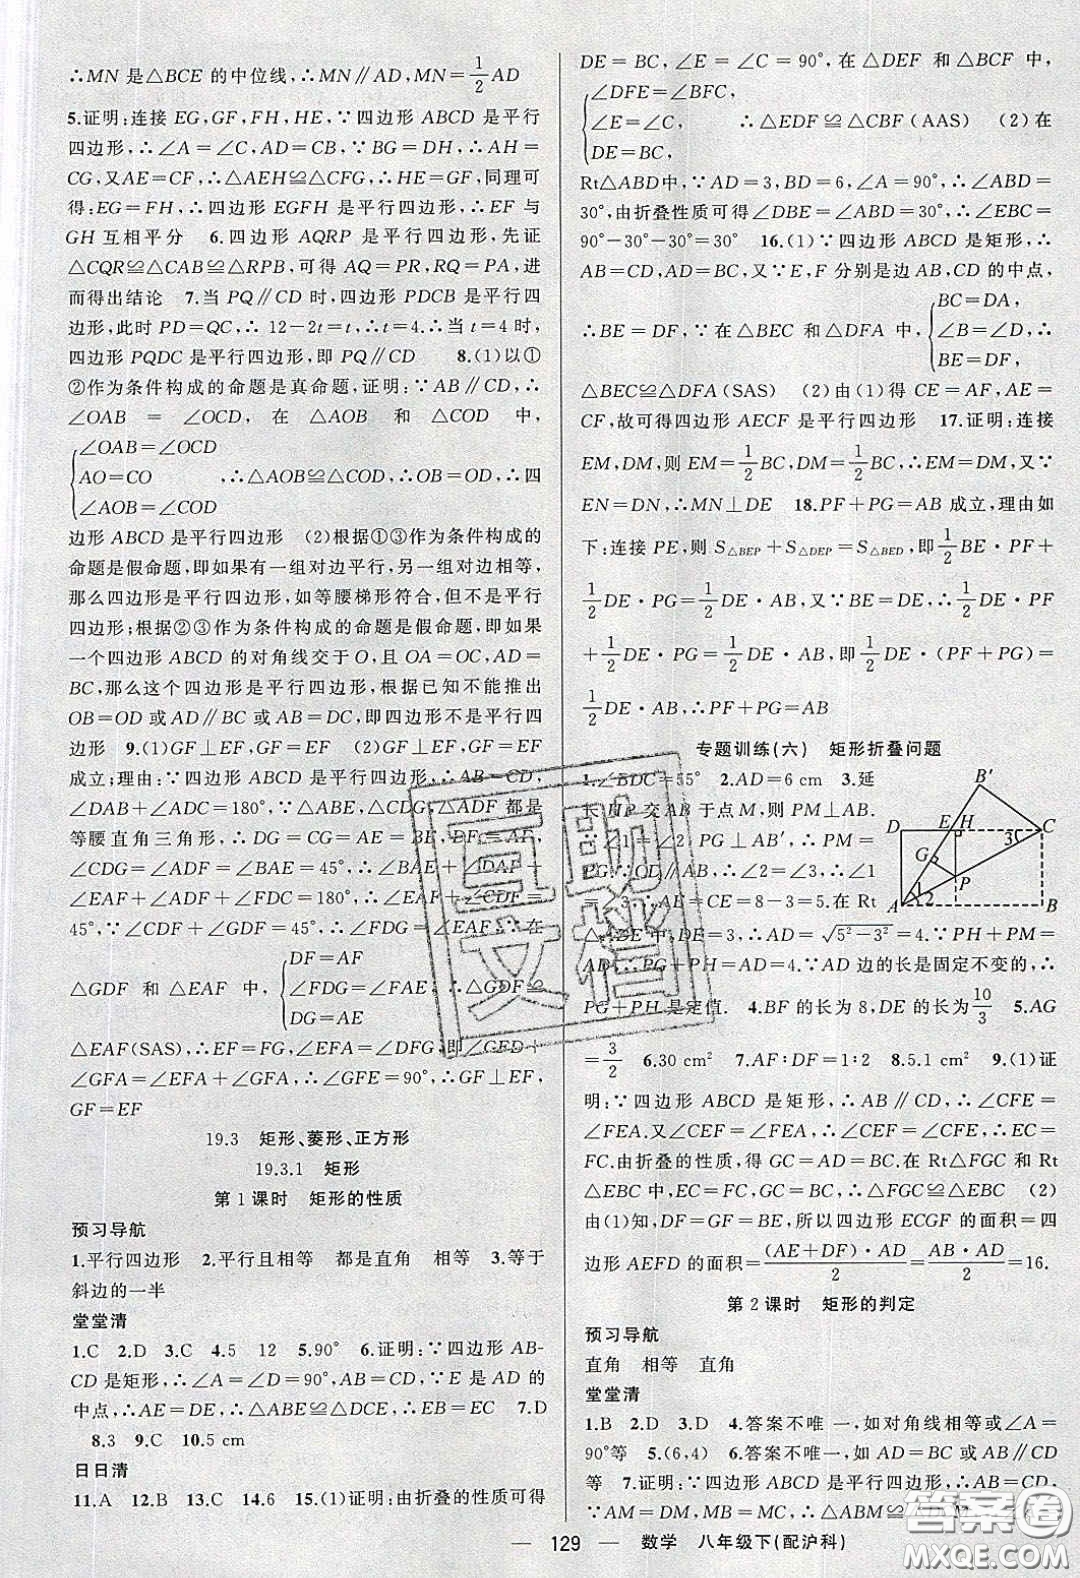 ∴MN 是△BCE 的中位线,∴MN∥AD,MN=1/2AD
5.证明:连接 EG,GF,FH,HE,∵四边形 ABCD 是平行
四边形,∴∠A=∠C,AD=CB,∵BG=DH,∴AH=
CG,又AE=CF,∴△AEH≌△CFG,∴HE=GF,同理可
得:EG=FH,∴四边形 EGFH 是平行四边形,∴EF 与
GH 互相平分 6.四边形 AQRP 是平行四边形,先证
△CQR≌△CAB≌△RPB,可得 AQ=PR,RQ=PA,进
而得出结论 7.当 PQ∥CD 时,四边形 PDCB 是平行四
边形,此时 PD=QC,∴12-2t=t,∴t=4.∴当 t=4 时,
四边形 PQDC 是平行四边形,即 PQ∥CD 8.(1)以①
②作为条件构成的命题是真命题,证明:∵AB∥CD,∴
∠OAB=∠OCD,在△AOB 和△COD 中,
∠OAB=∠OCD
AO=CO ∴△AOB≌△COD,∴OB=OD,∴四
∠AOB=∠COD
边形 ABCD 是平行四边形 (2)根据①③作为条件构成的
命题是假命题,即如果有一组对边平行,另一组对边相等,
那么四边形是平行四边形,如等腰梯形符合,但不是平行
四边形;根据②③作为条件构成的命题是假命题,即如果
一个四边形 ABCD 的对角线交于 O,且 OA=OC,AD=
BC,那么这个四边形是平行四边形,根据已知不能推出
OB=OD 或 AD∥BC 或 AB=DC,即四边形不是平行四
边形 9.(1)GF⊥EF,GF=EF (2)GF⊥EF,GF=EF
成立;理由:∵四边形 ABCD 是平行四边形,∴AB=CD,
∠DAB+∠ADC=180°,∵△ABE,△CDG,△ADF 都是
等腰直角三角形,∴DG=CG=AE=BE,DF=AF,
∠CDG=∠ADF=∠BAE=45°,∴∠BAE+∠DAF+
∠EAF+∠ADF+∠FDC=180°,∴∠EAF+∠CDF=
45°,∵∠CDF+∠GDF=45°,∴∠FDG=∠EAF,∵在
△GDF 和△EAF 中,
DF=AF
∠FDG=∠FAE,∴△GDF≌
DG=AE
△EAF(SAS),∴EF=FG,∠EFA=∠DFG,即∠GFD+
∠GFA=∠EFA+∠GFA,∴∠GFE=90°,∴GF⊥EF,
GF=EF
19.3 矩形、菱形、正方形
19.3.1 矩形
第1课时 矩形的性质
预习导航
1.平行四边形 2.平行且相等 都是直角 相等 3.等于
斜边的一半
堂堂清
1.C 2.D 3.C 4.5 12 5.90° 6.证明:∵四边形 AB-
CD 是矩形,∴∠A=∠D=90°,AB=DC,∵E 是 AD 的
中点,∴AE=DE,∴△ABE≌△DCE,∴EB=EC 7.D
8.3 9.C 10.5 cm
日日清
11.A 12.B 13.C 14.6 15.(1)证明:由折叠的性质可得
DE=BC,∠E=∠C=90°,在△DEF 和△BCF 中,
∠DFE=∠BFC,
∠E=∠C, ∴△EDF≌△CBF(AAS) (2)在
DE=BC,
Rt△ABD中,∵AD=3,BD=6,∠A=90°,∴∠ABD=
30°,由折叠性质可得∠DBE=∠ABD=30°,∴∠EBC=
90°-30°-30°=30° 16.(1)∵四边形 ABCD 是矩形,∴
AB=CD,AD=BC,又∵E,F 分别是边 AB,CD 的中点,
∴BE=DF,∵在△BEC 和△DFA 中,
BC=DA,
∠B=∠D,∴
BE=DF,
△BEC≌△DFA(SAS) (2)由(1)得 CE=AF,AE=
CF,故可得四边形 AECF 是平行四边形 17.证明:连接
EM,DM,则 EM=1/2BC,DM=1/2BC,∴EM=DM,又∵
EN=DN,∴MN⊥DE 18.PF+PG=AB 成立,理由如
下:连接 PE,则 S△BEP+S△DEP=S△BED,即1/2BE·PF+
1/2DE·PG=1/2DE·AB,又∵BE=DE,∴1/2DE·PF
+1/2DE·PG=1/2DE·AB,即1/2DE·(PF+PG)=
1/2DE·AB,∴PF+PG=AB
专题训练(六) 矩形折叠问题
1.∠BDC=55° 2.AD=6 cm 3.延
长 HP 交 AB 于点 M,则 PM⊥AB.
∵∠1=∠2,PG⊥AB′,∴PM=
PG.∵CD∥AB,∴∠2=∠3,∴∠1
=∠3,∴AE=CE=8-3=5.在 Rt
△ADE 中,DE=3,∴AD=√(5²-3²)=4.∵PH+PM=
AD,∴PG+PH=AD=4.∵AD 边的长是固定不变的,∴
PG+PH 是定值. 4.BF 的长为 8,DE 的长为10/3 5.AG
=3/2 6.30 cm² 7.AF∶DF=1∶2 8.5.1 cm² 9.(1)证
明:∵四边形 ABCD 是矩形,∴AB∥CD,∴∠CFE=
∠FEA.又∵∠CEF=∠FEA,∴∠CEF=∠CFE,∴EC=
FC.由折叠的性质,得 GC=AD=BC.在 Rt△FGC 和 Rt
△EBC 中,EC=FC,GC=BC,∴△FGC≌△EBC (2)
由(1)知,DF=GF=BE,所以四边形 ECGF 的面积=四
边形 AEFD 的面积=(AE+DF)·AD/2=AB·AD/2=16.
第2课时 矩形的判定
预习导航
直角 相等 直角
堂堂清
1.B 2.D 3.D 4.答案不唯一,如对角线相等或∠A=
90°等 5.(6,4) 6.答案不唯一,如 AD=BC 或 AB∥CD
等 7.证明:∵四边形 ABCD 是平行四边形,∴AB=CD,
∵AM=DM,MB=MC,∴△ABM≌
D E H C B′ G P A B 1 2 3
129 数学 八年级下(配沪科)
答案圈
MXQE.COM